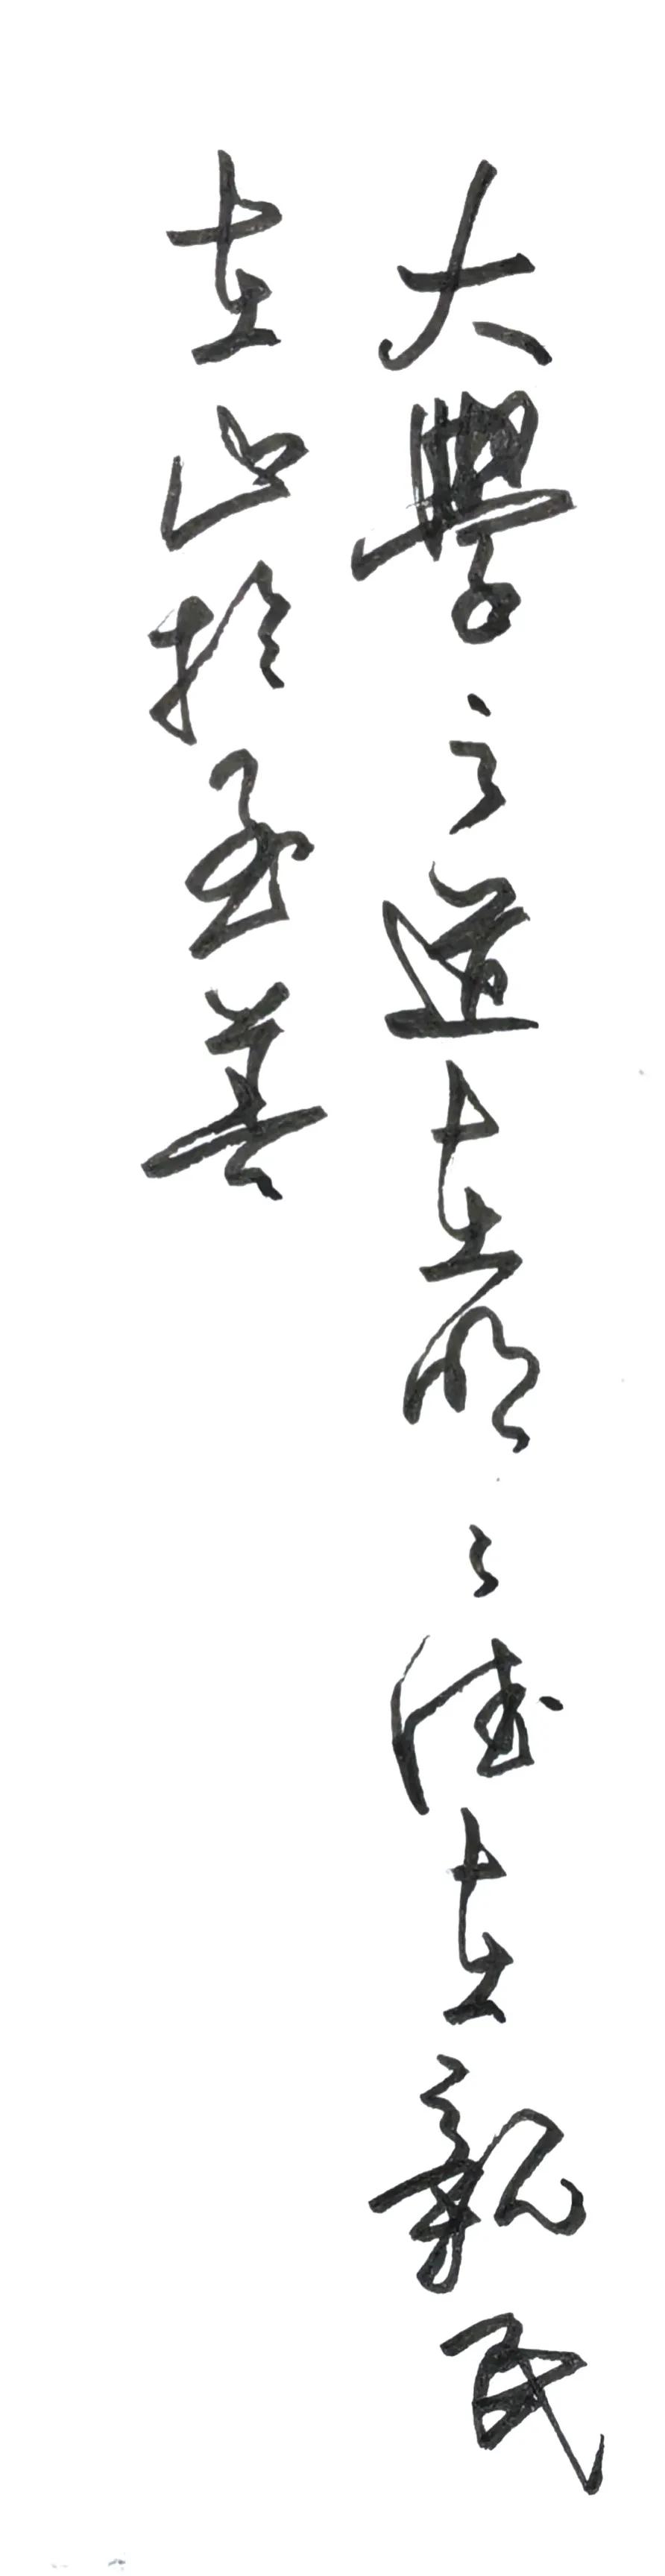 大學之道在明々德在親民
在止於至善